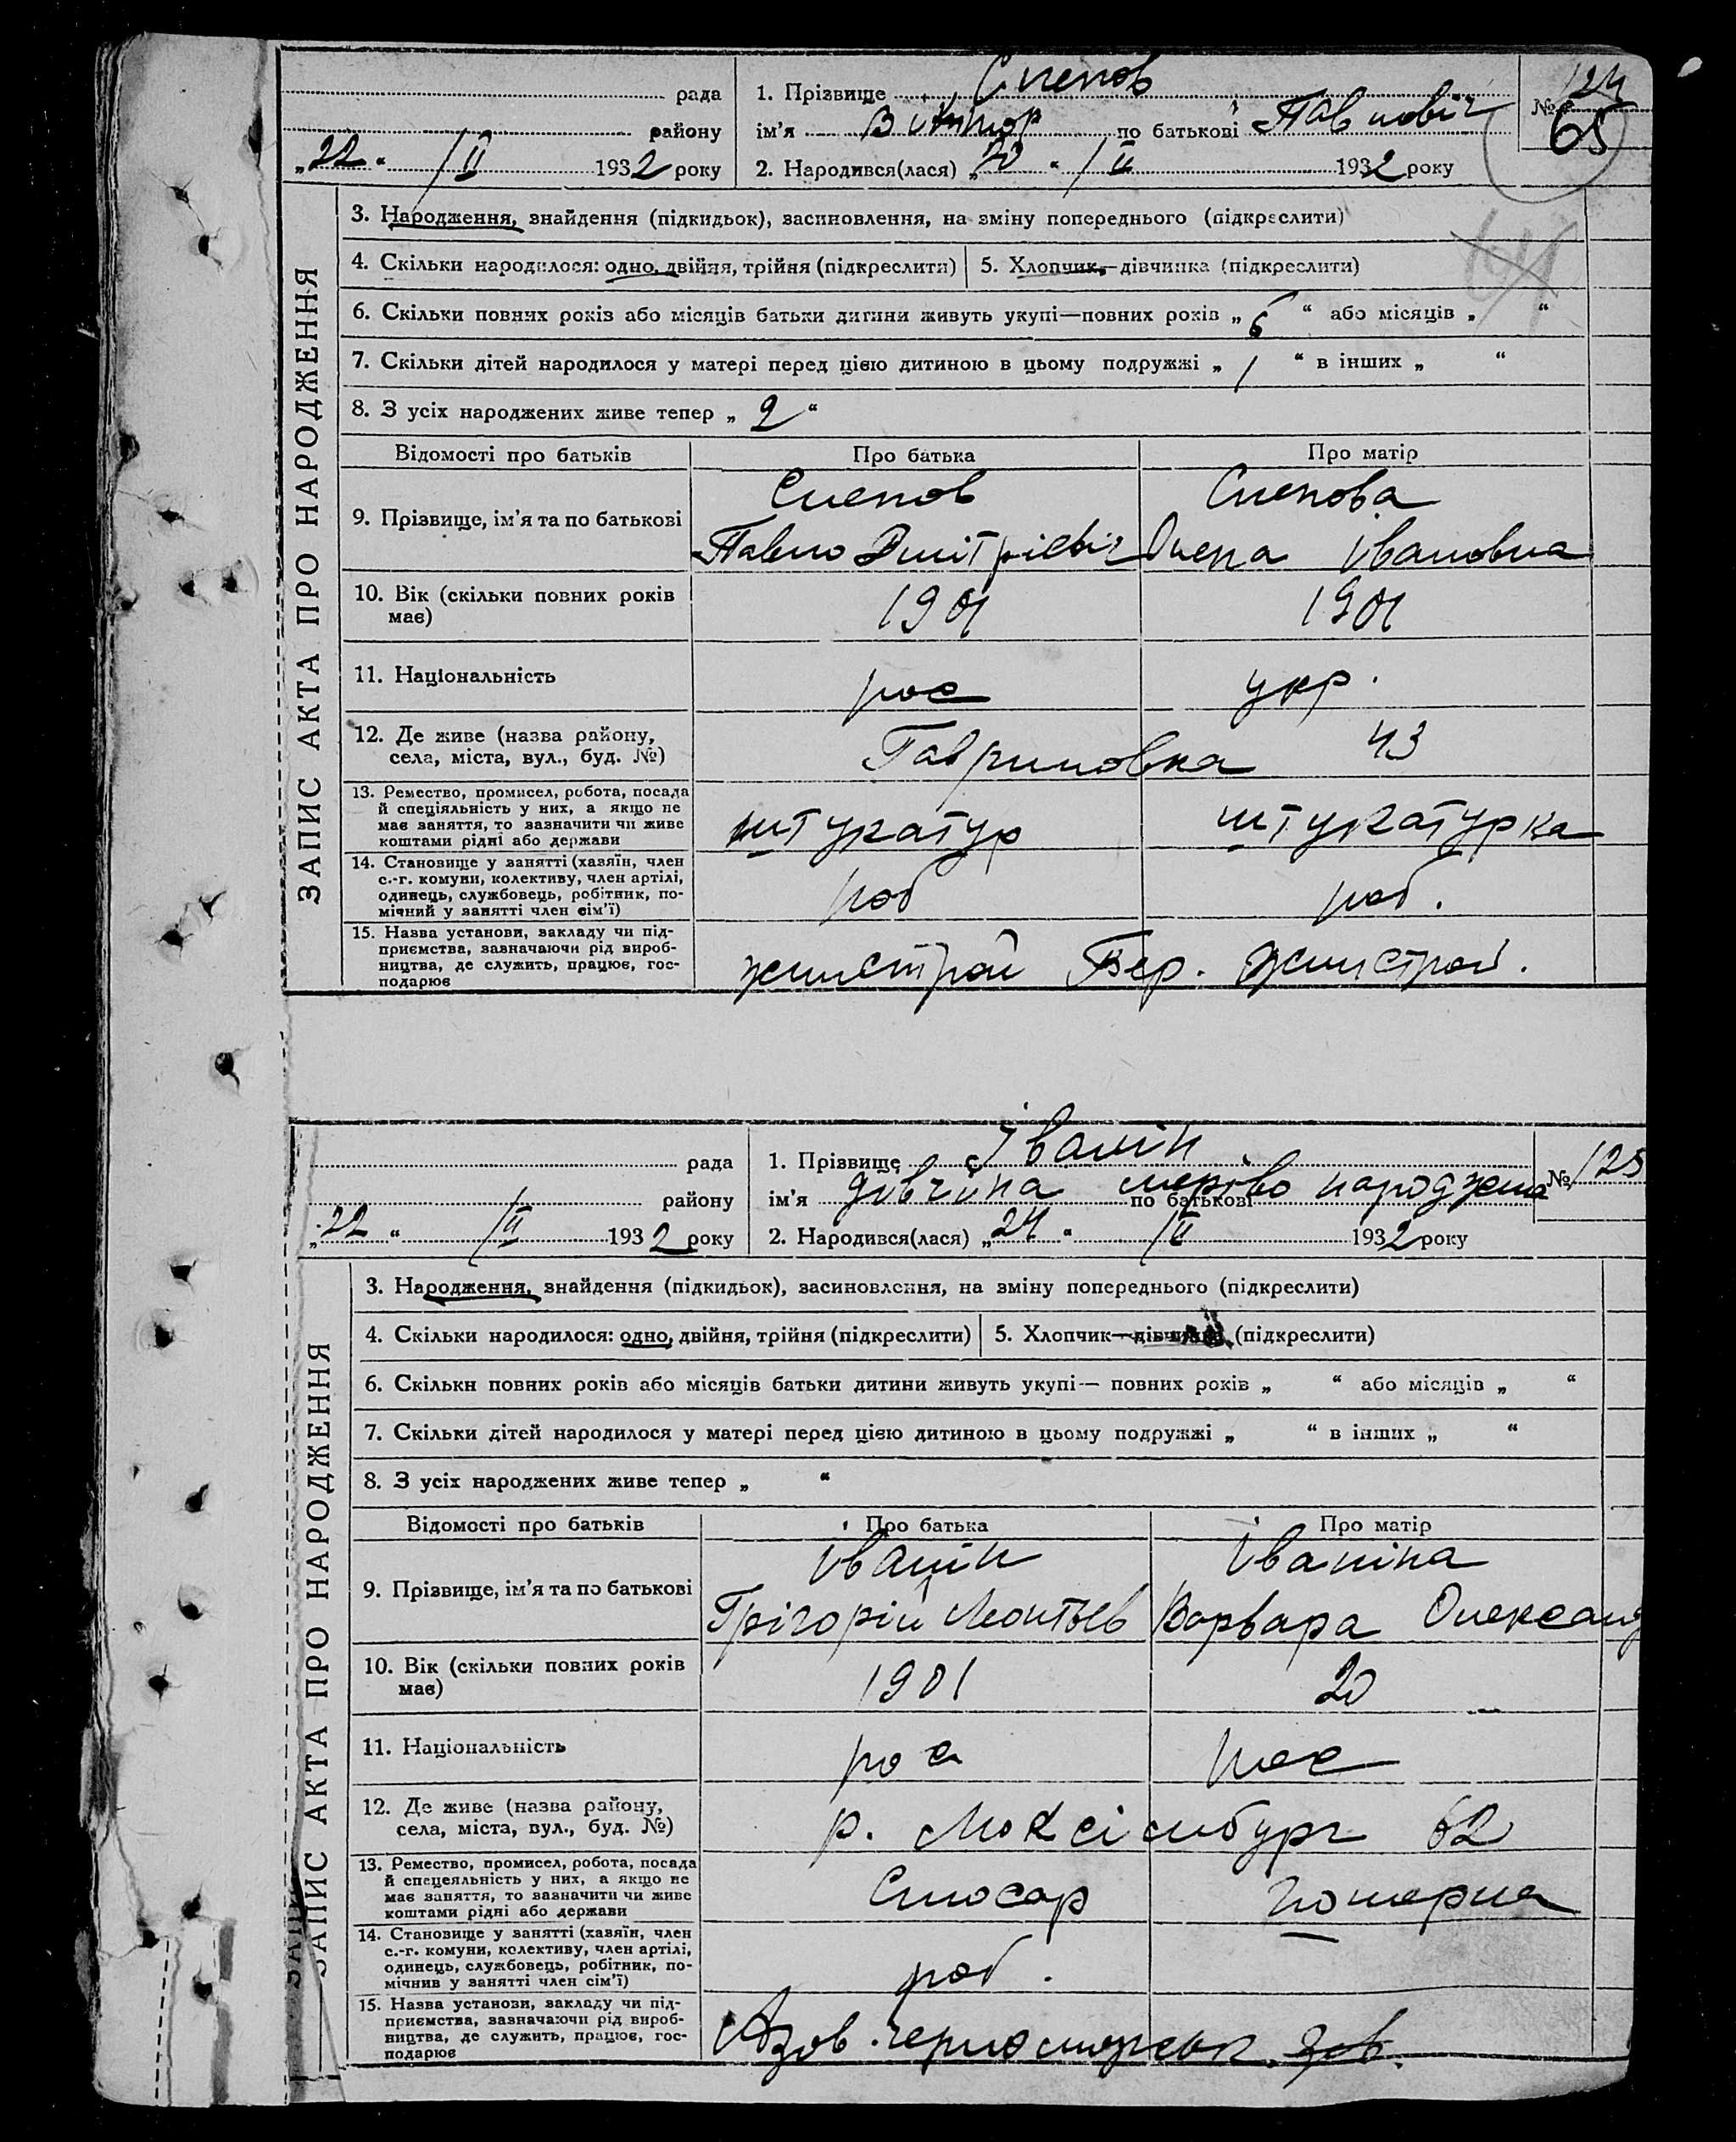 рада
району
„22“ /II 1932 року
1. Прізвище Слепов
ім’я Віктор по батькові Павловіч
2. Народився(лася) „20“ /II 1932 року
№ 124
65
ЗАПИС АКТА ПРО НАРОДЖЕННЯ
3. Народження, знайдення (підкидьок), засиновлення, на зміну попереднього (підкреслити)
4. Скільки народилося: одно, двійня, трійня (підкреслити)
5. Хлопчик—дівчинка (підкреслити)
6. Скільки повних років або місяців батьки дитини живуть укупі—повних років „6“ або місяців „ “
7. Скільки дітей народилося у матері перед цією дитиною в цьому подружжі „1“ в інших „ “
8. З усіх народжених живе тепер „2“
Відомості про батьків Про батька Про матір
9. Прізвище, ім’я та по батькові
Слепов Слепова
Павло Дмітріевіч Олена Івановна
10. Вік (скільки повних років
має)
1901 1901
11. Національність рос укр.
12. Де живе (назва району,
села, міста, вул., буд. №)
Гавриловка 43
13. Ремество, промисел, робота, посада
й спеціяльність у них, а якщо не
має заняття, то зазначити чи живе
коштами рідні або держави
штукатур штукатурка
14. Становище у занятті (хазяїн, член
с.-г. комуни, колективу, член артілі,
одинець, службовець, робітник, по-
мічний у занятті член сім’ї)
роб роб.
15. Назва установи, закладу чи під-
приємства, зазначаючи рід вироб-
ництва, де служить, працює, гос-
подарює
жилстрой Бер. жилстрой.
рада
району
„22“ /II 1932 року
1. Прізвище Іванін
ім’я дівчіна по батькові мертво народжена
2. Народився(лася) „21“ /II 1932 року
№ 125
ЗАПИС АКТА ПРО НАРОДЖЕННЯ
3. Народження, знайдення (підкидьок), засиновлення, на зміну попереднього (підкреслити)
4. Скільки народилося: одно, двійня, трійня (підкреслити)
5. Хлопчик—дівчинка (підкреслити)
6. Скільки повних років або місяців батьки дитини живуть укупі— повних років „ “ або місяців „ “
7. Скільки дітей народилося у матері перед цією дитиною в цьому подружжі „ “ в інших „ “
8. З усіх народжених живе тепер „ “
Відомості про батьків Про батька Про матір
9. Прізвище, ім’я та по батькові
Іванін Іваніна
Грігорій Леонтьев Варвара Олександ
10. Вік (скільки повних років
має)
1901 20
11. Національність рос рос
12. Де живе (назва району,
села, міста, вул., буд. №)
р. Люксімбург 62
13. Ремество, промисел, робота, посада
й спецеяльність у них, а якщо не
має заняття, то зазначити чи живе
коштами рідні або держави
Слюсар
14. Становище у занятті (хазяїн, член
с.-г. комуни, колективу, член артілі,
одинець, службовець, робітник, по-
мічнив у занятті член сім’ї)
роб.
15. Назва установи, закладу чи під-
приємства, зазначаючи рід вироб-
ництва, де служить, працює, гос-
подарює
Азов. черноморськ. зав.